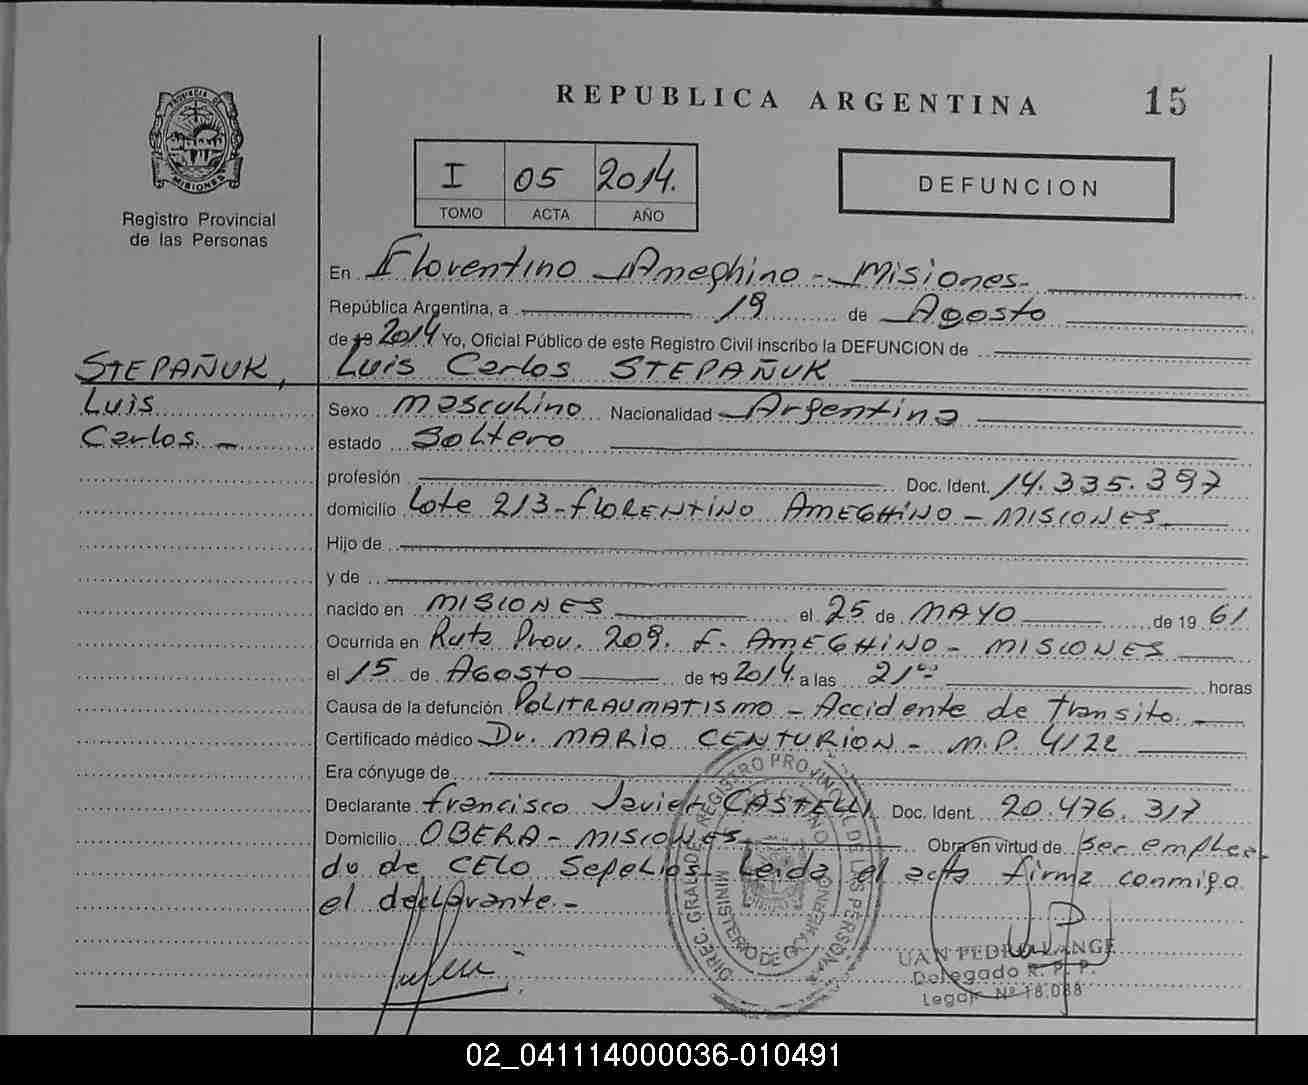 REPUBLICA ARGENTINA 15
PROVINCIA DE
MISIONES
Registro Provincial
de las Personas
I 05 2014.
TOMO ACTA AÑO
DEFUNCION
En Florentino Ameghino - Misiones.
República Argentina, a 19 de Agosto
de 19 2014 Yo, Oficial Público de este Registro Civil inscribo la DEFUNCION de
STEPAÑUK, Luis Carlos STEPAÑUK
Luis Sexo masculino Nacionalidad Argentina
Carlos. - estado Soltero
profesión Doc. Ident. 14.335.397
domicilio Lote 213-FLORENTINO AMEGHINO - MISIONES.
Hijo de
y de
nacido en MISIONES el 25 de MAYO de 19 61
Ocurrida en Ruta Prov. 209. F. AMEGHINO - MISIONES
el 15 de Agosto de 19 2014. a las 21 00 horas
Causa de la defunción POLITRAUMATISMO - Accidente de transito. -
Certificado médico Dr. MARIO CENTURION - M.P. 4122
Era cónyuge de
Declarante Francisco Javier CASTELLI Doc. Ident. 20.476.317
Domicilio OBERA - MISIONES Obra en virtud de ser emplea-
do de CELO Sepelios. Leida el acta firma conmigo
el declarante. -
DIREC. GRAL. DE REGISTRO PROVINCIAL DE LAS PERSONAS
MINISTERIO DE
UAN PEDRO LANGE
Delegado R. P. P.
Legajo Nº 18.088
02_041114000036-010491